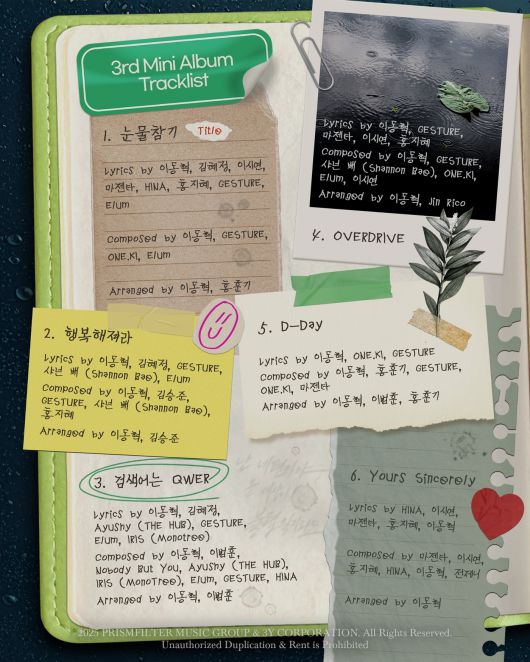 3rd Mini Album
Tracklist
1. 눈물참기 Title
Lyrics by 이동혁, 김혜정, 이시연,
마젠타, HINA, 홍지혜, GESTURE,
Elum
Composed by 이동혁, GESTURE,
ONE.KI, Elum
Arranged by 이동혁, 홍훈기
2. 행복해져라
Lyrics by 이동혁, 김혜정, GESTURE,
샤넌 배 (Shannon Bae), Elum
Composed by 이동혁, 김승준,
GESTURE, 샤넌 배 (Shannon Bae),
홍지혜
Arranged by 이동혁, 김승준
3. 검색어는 QWER
Lyrics by 이동혁, 김혜정,
Ayushy (THE HUB), GESTURE,
Elum, IRIS (MonoTree)
Composed by 이동혁, 이범훈,
Nobody But You, Ayushy (THE HUB),
IRIS (MonoTree), Elum, GESTURE, HINA
Arranged by 이동혁, 이범훈
Lyrics by 이동혁, GESTURE,
마젠타, 이시연, 홍지혜
Composed by 이동혁, GESTURE,
샤넌 배 (Shannon Bae), ONE.KI,
Elum, 이시연
Arranged by 이동혁, Jin Rico
4. OVERDRIVE
5. D-Day
Lyrics by 이동혁, ONE.KI, GESTURE
Composed by 이동혁, 홍훈기, GESTURE,
ONE.KI, 마젠타
Arranged by 이동혁, 이범훈, 홍훈기
6. Yours Sincerely
Lyrics by HINA, 이시연,
마젠타, 홍지혜, 이동혁
Composed by 마젠타, 이시연,
홍지혜, HINA, 이동혁, 전제니
Arranged by 이동혁
℗ 2025 PRISMFILTER MUSIC GROUP & 3Y CORPORATION. All Rights Reserved.
Unauthorized Duplication & Rent is Prohibited